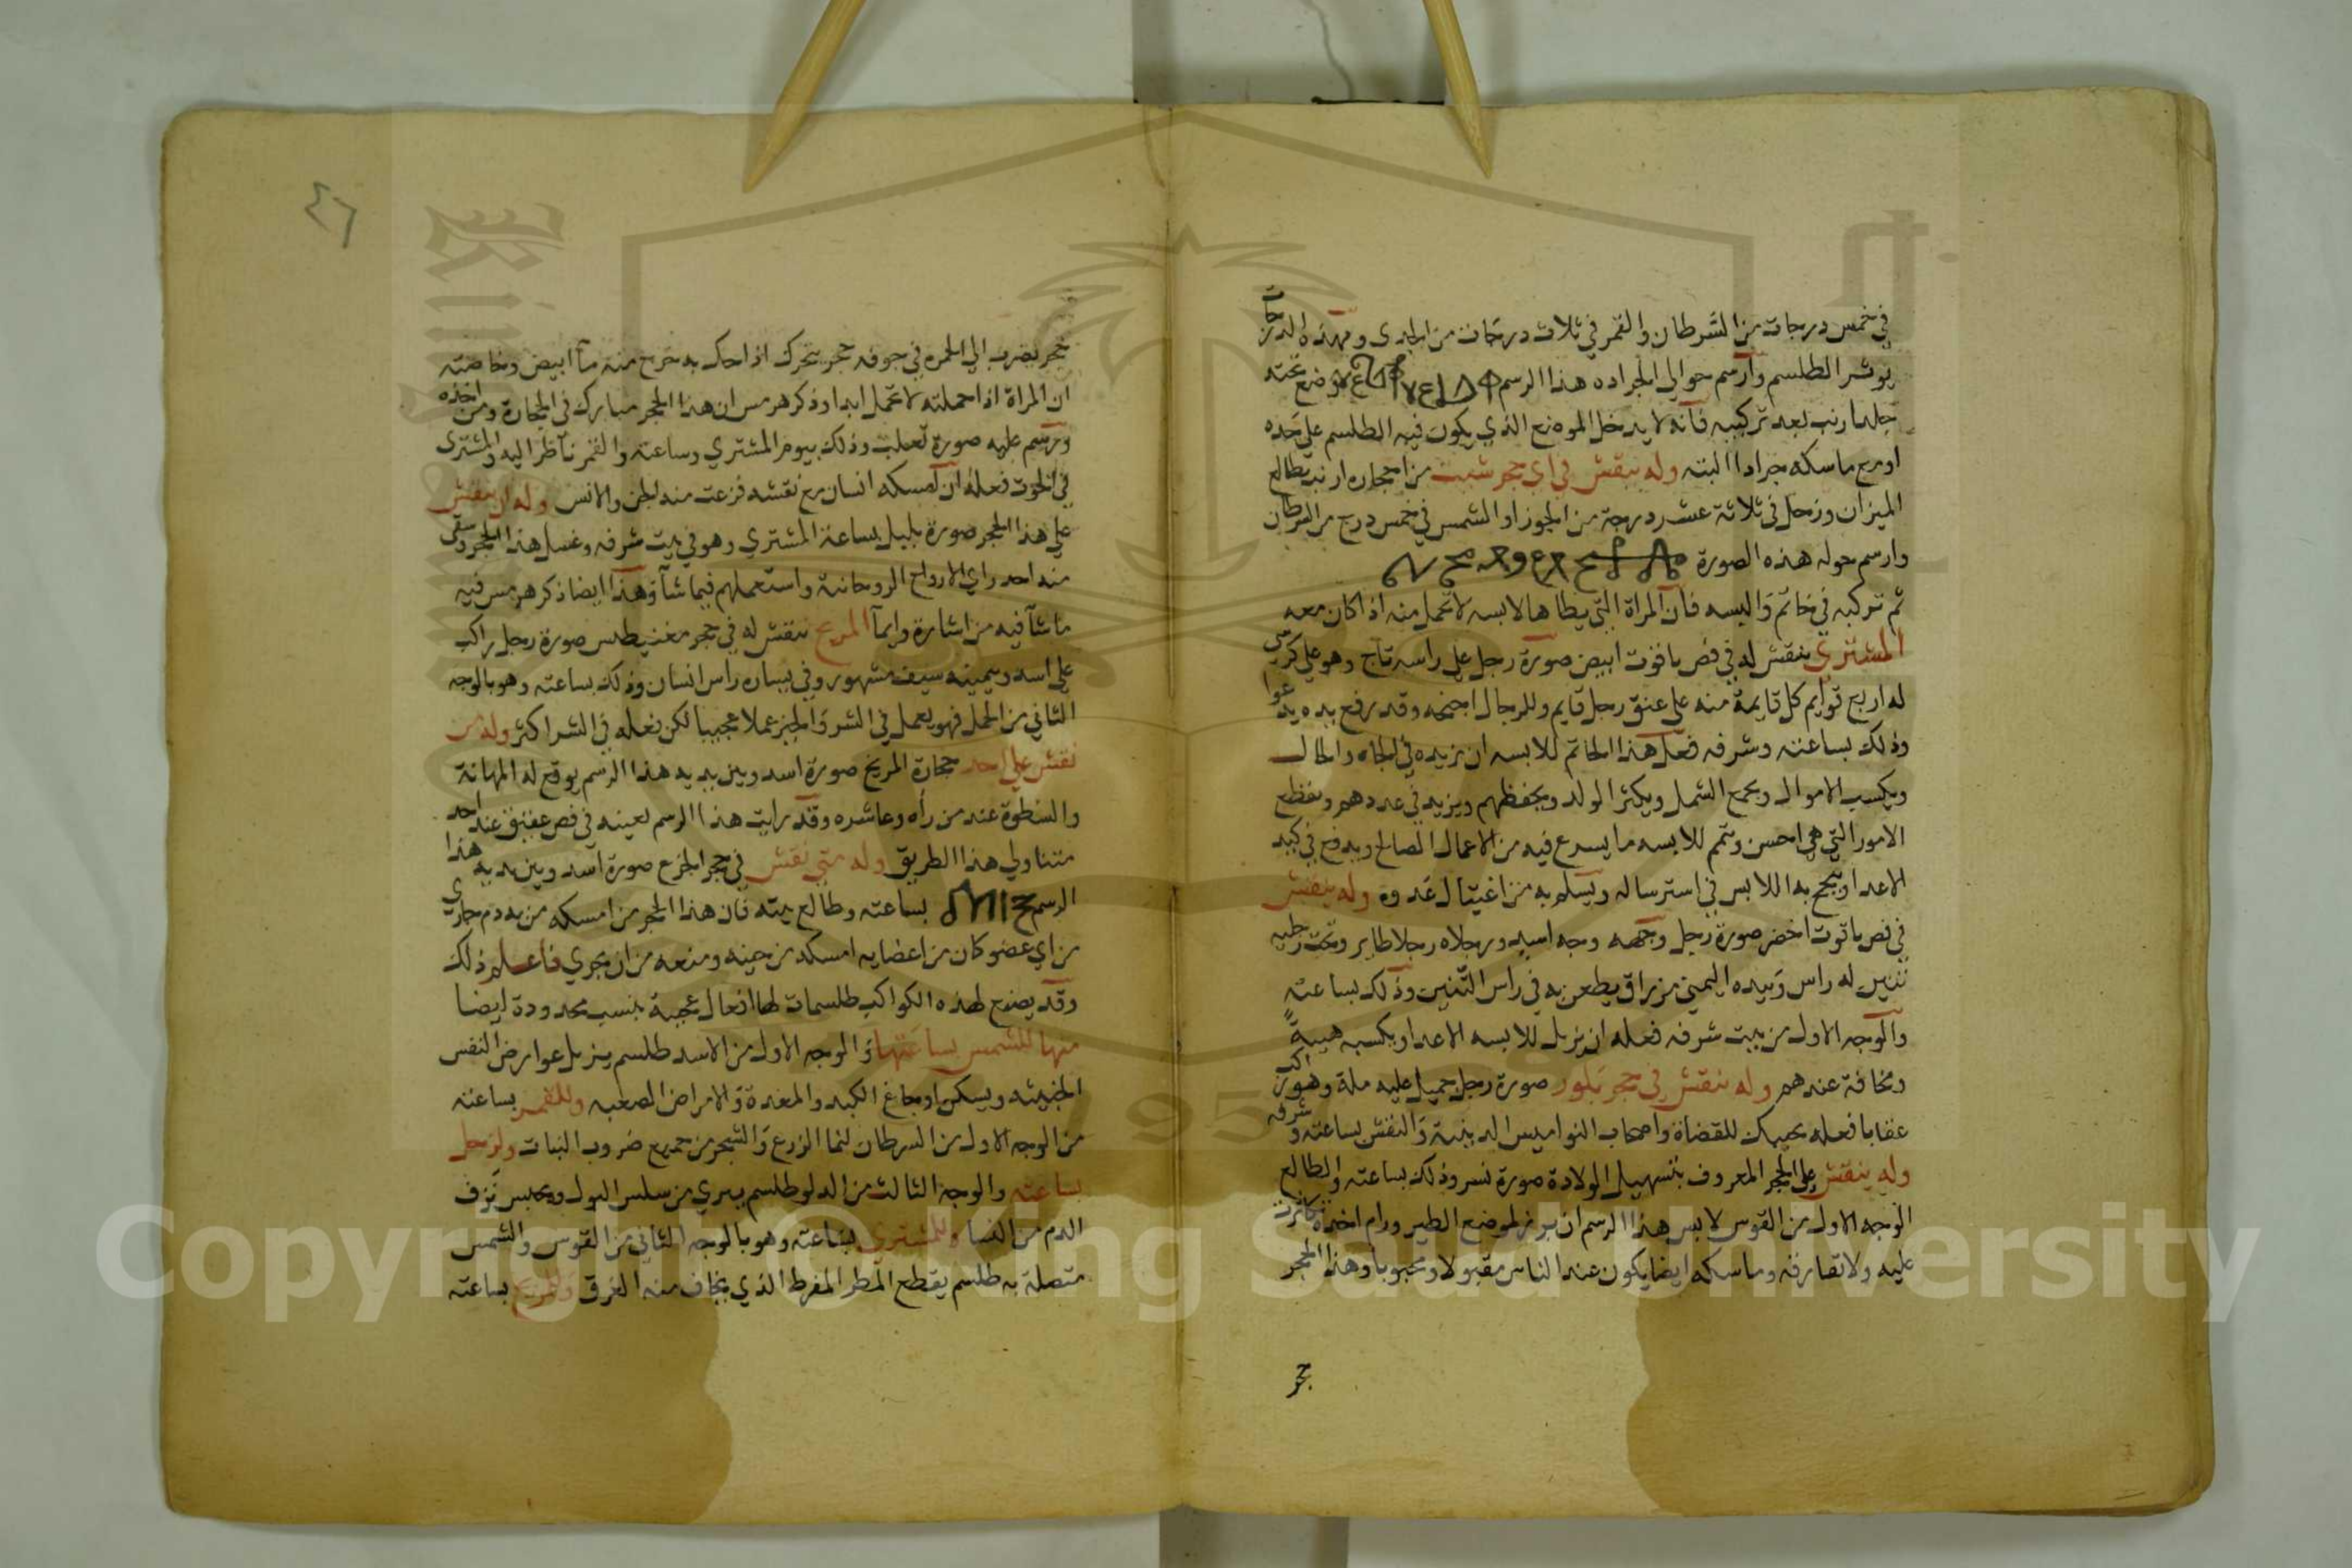 في خمس درجات من السرطان والقمر في ثلاث درجات من الجدي وبهذه الدرجات
يوثر الطلسم وارسم حوالي الجراده هذا الرسم وضع تحته
جلد ارنب بعد تركيبه فانه لا يدخل الموضع الذي يكون فيه الطلسم علي حده
او مع ماسكه جرادا البته وله ينقش في اي حجر شيت من احجاره ارنب بطالع
الميزان وزحل في ثلاثة عشر درجة من الجوزا والشمس في خمس درج من السرطان
وارسم حوله هذه الصورة
ثم تركبه في خاتم والبسه فان المراة التي يطاها لابسه لا تحمل منه اذا كان معه
المشتري ينقش له في فص ياقوت ابيض صورة رجل علي راسه تاج وهو علي كرسي
له اربع قوايم كل قايمة منه علي عنق رجل قايم وللرجال اجنحه وقد رفع يده يدعوا
وذلك بساعته وشرفه فعل هذا الخاتم للابسه ان يزيده في الجاه والحال
ويكسب الاموال ويجمع الشمل ويكثر الولد ويحفظهم ويزيد في عددهم ويقطع
الامور التي هي احسن ويتمم للابسه ما يسرع فيه من الاعمال الصالح ويدفع في كبد
الاعدا وينجح به اللابس في استرساله ويسلم به من اغتيال عدوه وله ينقش
في فص ياقوت اخضر صورة رجل وجهه وجه اسد ورجلاه رجلا طاير وتحت رجليه
تنين له راس وبيده اليمني مزراق يطعن به في راس التنين وذلك بساعته
والوجه الاول من بيت شرفه فعله ان يزيل للابسه الاعدا ويكسبه هيبة
ومخافة عندهم وله ينقش في حجر بلور صورة رجل جميل عليه ملة وهو راكب
عقابا فعله يحببك للقضاة واصحاب النواميس الدينية والنقش بساعته وشرفه
وله ينقش علي الحجر المعروف بتسهيل الولادة صورة نسر وذلك بساعته والطالع
الوجه الاول من القوس لابس هذا الرسم ان برز لموضع الطير ورام اخذه تكاثرت
عليه ولا تفارقه وماسكه ايضا يكون عند الناس مقبولا ومحبوبا وهذا الحجر
حجر
٤٦
حجر يضرب الي الحمره في جوفه حجر يتحرك اذا حك به خرج منه مآ ابيض وخاصته
ان المراة اذا حملته لا تحمل ابدا وذكر هرمس ان هذا الحجر مبارك في الحجارة ومن اخذه
ورسم عليه صورة ثعلب وذلك بيوم المشتري وساعته والقمر ناظر اليه والمشتري
في الحوت فعله ان امسكه انسان مع نقشه فزعت منه الجن والانس وله ان ينقش
علي هذا الحجر صورة بلبل بساعة المشتري وهو في بيت شرفه وغسل هذا الحجر وسقي
منه احد راي الارواح الروحانية واستعملهم فيما شآ وهذا ايضا ذكر هرمس فيه
ما شآ فيه من اشارة وايمآ المريخ ينقش له في حجر مغنيطس صورة رجل راكب
علي اسد وبيمينه سيف مشهور وفي يساره راس انسان وذلك بساعته وهو بالوجه
الثاني من الحمل فهو يعمل في الشر والخير عملا عجيبا لكن فعله في الشر اكثر وله من
نقش علي احد حجارة المريخ صورة اسد وبين يديه هذا الرسم يوقع له المهانة
والسطوة عند من رأه وعاشره وقد رايت هذا الرسم بعينه في فص عقيق عند احد
متناولي هذا الطريق وله متي نقش في حجر الجزع صورة اسد وبين يديه هذا
الرسم بساعته وطالع بيته فان هذا الحجر من امسكه من به دم جاري
من اي عضو كان من اعضايه امسكه من حينه ومنعه من ان يجري فاعلم ذلك
وقد يصنع لهذه الكواكب طلسمات لها افعال عجيبة بنسب محدودة ايضا
منها للشمس بساعتها والوجه الاول من الاسد طلسم يزيل عوارض النفس
الخبيثه ويسكن اوجاع الكبد والمعدة والامراض الصعبه وللقمر بساعته
من الوجه الاول من السرطان لنما الزرع والشجر من جميع ضروب النبات ولزحل
بساعته والوجه الثالث من الدلو طلسم يبري من سلس البول ويحبس نزف
الدم من النسا وللمشتري بساعته وهو بالوجه الثاني من القوس والشمس
متصلة به طلسم يقطع المطر المفرط الذي يخاف منه الغرق وللمريخ بساعته
Copyright © King Saud University
1957